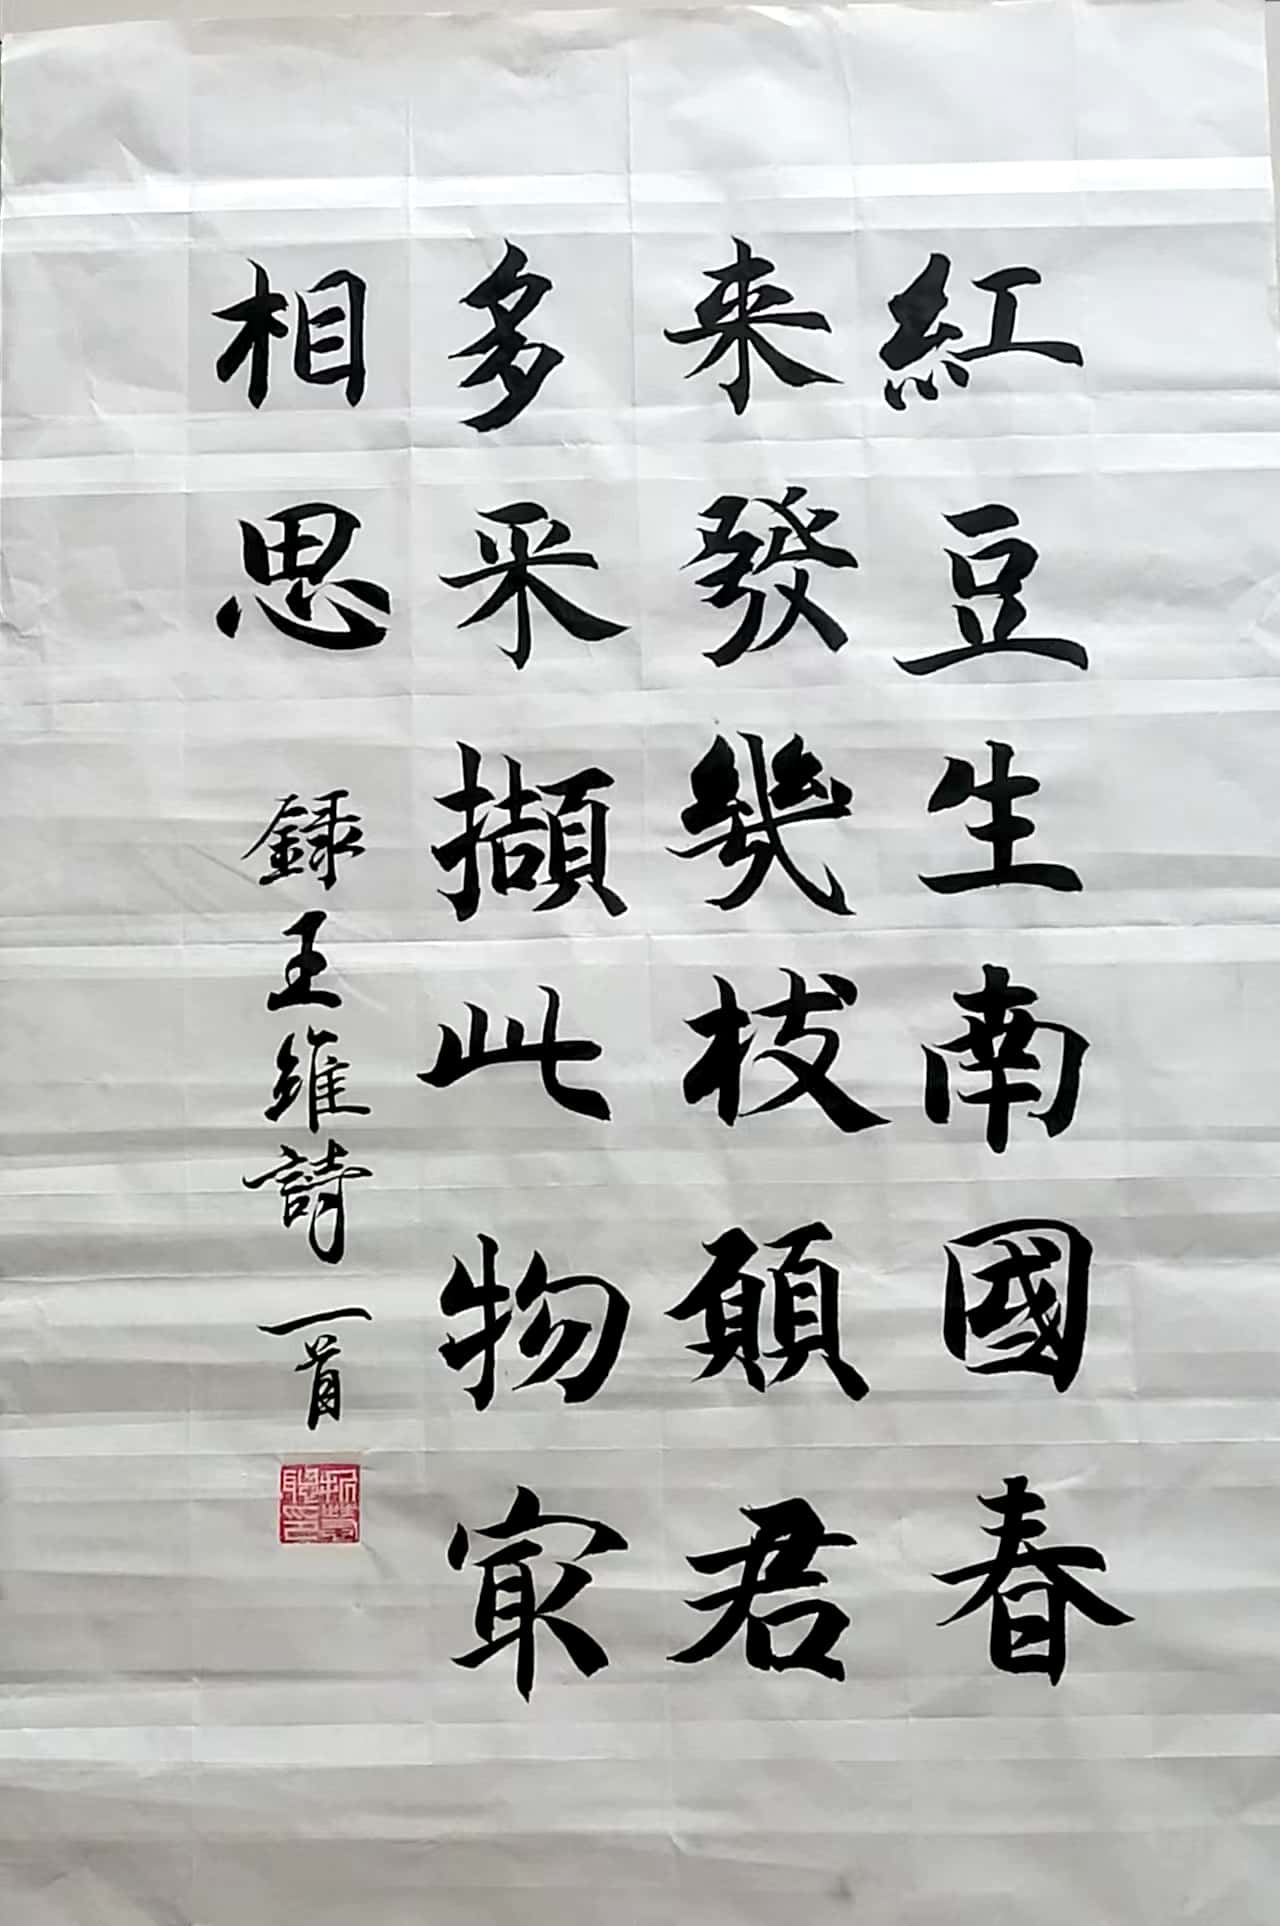 紅豆生南國春
来發幾枝願君
多采擷此物㝡
相思
録王維詩一首